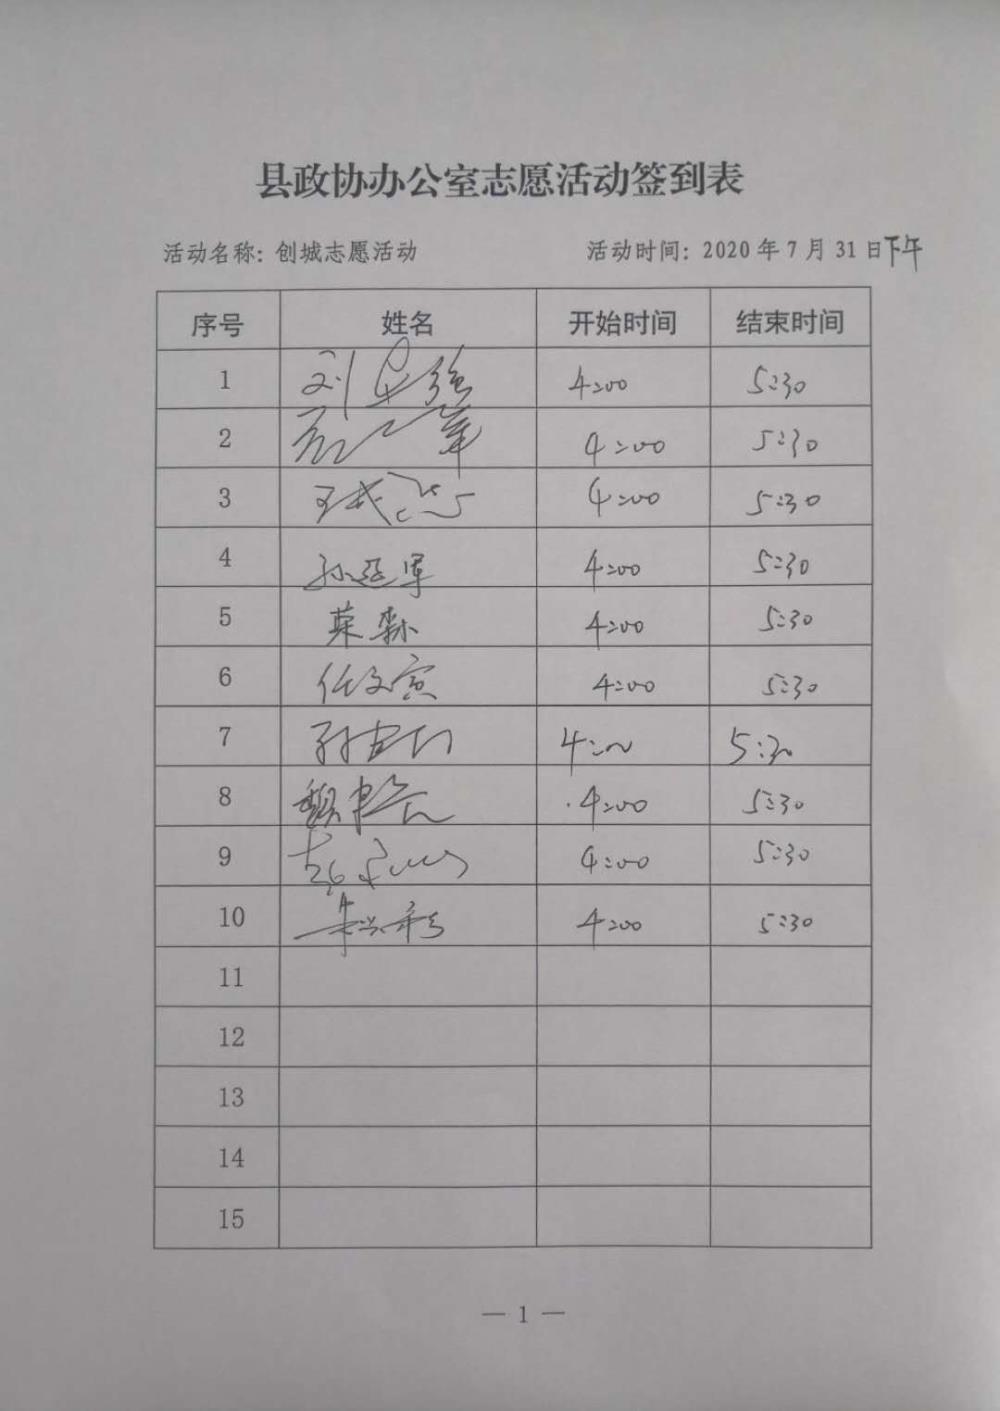 县政协办公室志愿活动签到表
活动名称: 创城志愿活动 活动时间: 2020年7月31日下午
序号 姓名 开始时间 结束时间
1 刘 强 4:00 5:30
2 军 4:00 5:30
3 王 4:00 5:30
4 孙延军 4:00 5:30
5 荣森 4:00 5:30
6 任文寅 4:00 5:30
7 孙 4:00 5:30
8 魏 4:00 5:30
9 赵 4:00 5:30
10 朱兴 4:00 5:30
11
12
13
14
15
— 1 —